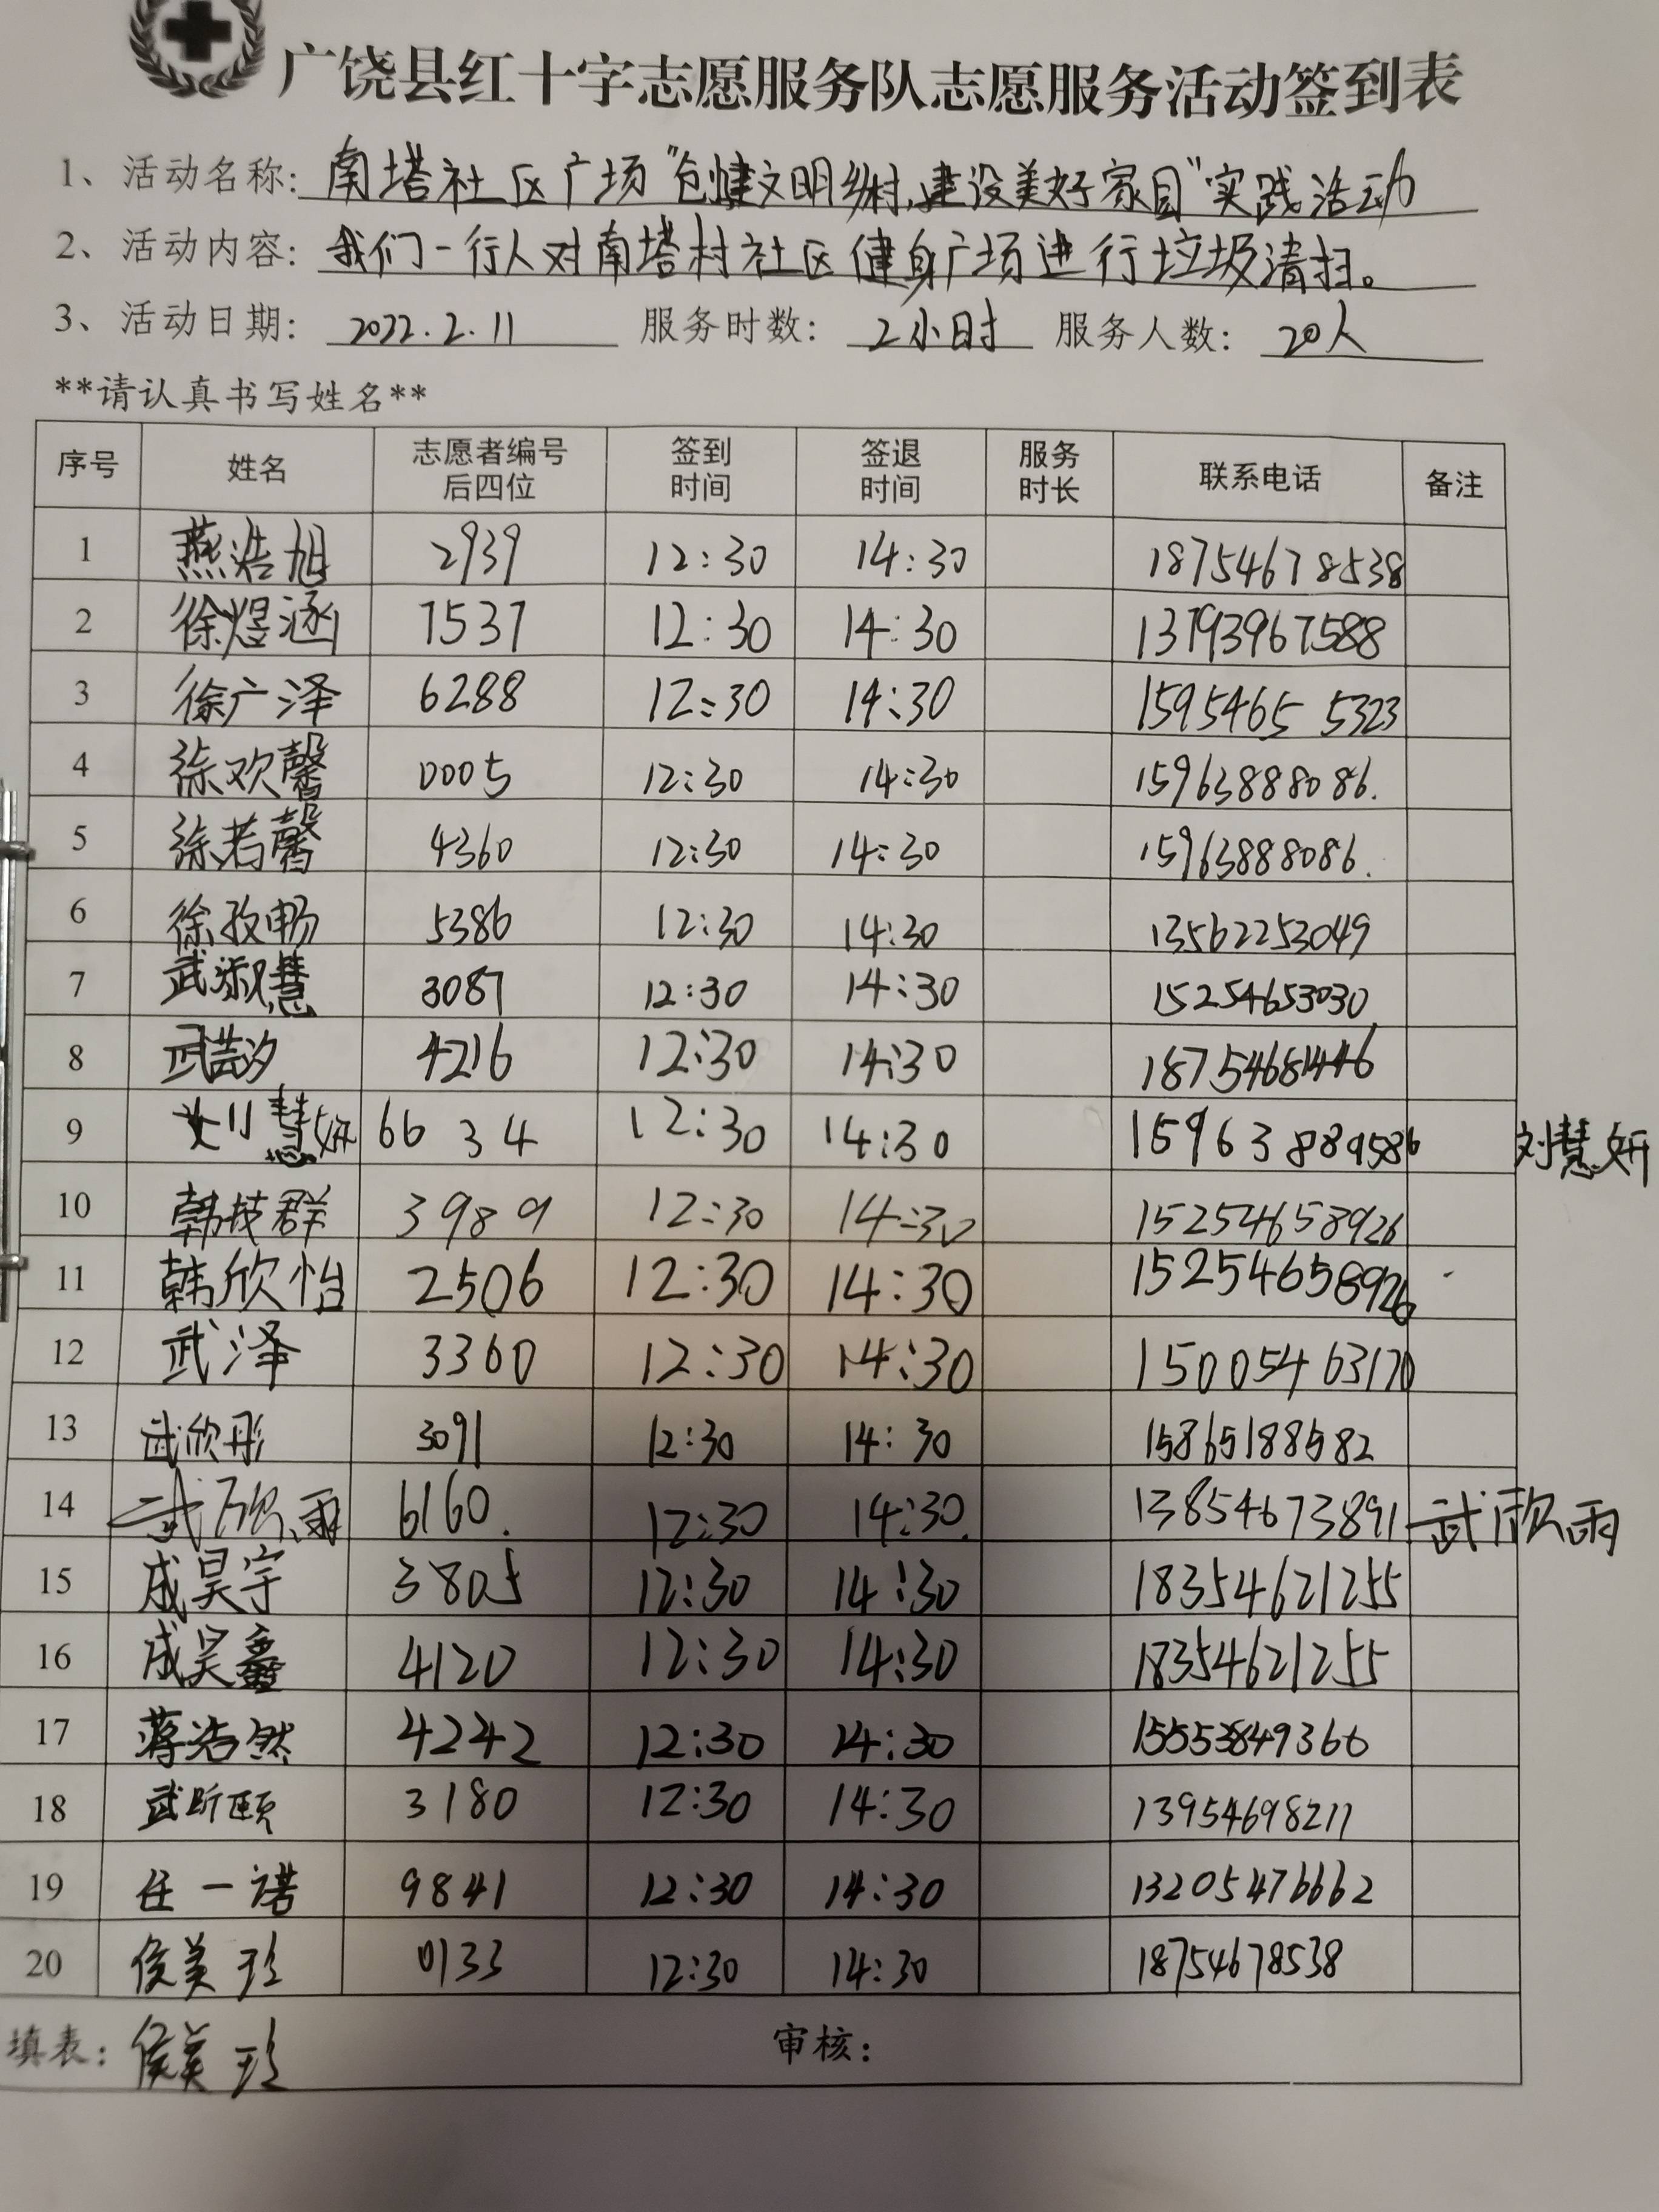 广饶县红十字志愿服务队志愿服务活动签到表
1、活动名称: 南塔社区广场"创建文明乡村,建设美好家园"实践活动
2、活动内容: 我们一行人对南塔村社区健身广场进行垃圾清扫。
3、活动日期: 2022.2.11 服务时数: 2小时 服务人数: 20人
**请认真书写姓名**
序号 姓名 志愿者编号后四位 签到时间 签退时间 服务时长 联系电话 备注
1 燕浩旭 2939 12:30 14:30 18754678538
2 徐煜涵 7537 12:30 14:30 13793967588
3 徐广泽 6288 12:30 14:30 15954655323
4 徐欢馨 0005 12:30 14:30 15963888086.
5 徐若馨 4360 12:30 14:30 15963888086.
6 徐孜畅 5386 12:30 14:30 13562253049
7 武淑慧 3087 12:30 14:30 15254653030
8 武芸汐 4216 12:30 14:30 18754681446
9 刘慧妍 6634 12:30 14:30 15963889586 刘慧妍
10 韩技群 3989 12:30 14:30 15254658926
11 韩欣怡 2506 12:30 14:30 15254658926
12 武泽 3360 12:30 14:30 15005463170
13 武欣彤 3091 12:30 14:30 15865188582
14 武欣雨 6160. 12:30 14:30. 13854673891 武欣雨
15 成昊宇 3805 12:30 14:30 18354621255
16 成昊鑫 4120 12:30 14:30 18354621255
17 蒋浩然 4242 12:30 14:30
18 武昕颐 3180 12:30 14:30 13954698211
19 任一诺 9841 12:30 14:30 13205476662
20 侯美玲 0133 12:30 14:30 18754678538
填表: 侯美玲 审核: